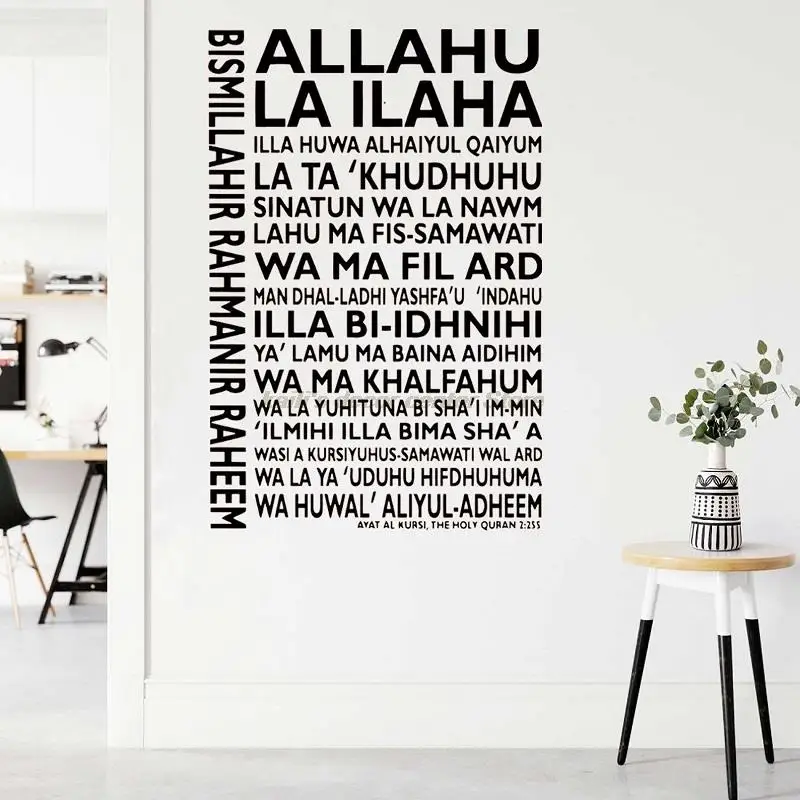 BISMILLAHIR RAHMANIR RAHEEM
ALLAHU
LA ILAHA
ILLA HUWA ALHAIYUL QAIYUM
LA TA ‘KHUDHUHU
SINATUN WA LA NAWM
LAHU MA FIS-SAMAWATI
WA MA FIL ARD
MAN DHAL-LADHI YASHFA’U ‘INDAHU
ILLA BI-IDHNIHI
YA’ LAMU MA BAINA AIDIHIM
WA MA KHALFAHUM
WA LA YUHITUNA BI SHA’I IM-MIN
‘ILMIHI ILLA BIMA SHA’ A
WASI A KURSIYUHUS-SAMAWATI WAL ARD
WA LA YA ‘UDUHU HIFDHUHUMA
WA HUWAL’ ALIYUL-ADHEEM
AYAT AL KURSI, THE HOLY QURAN 2:255